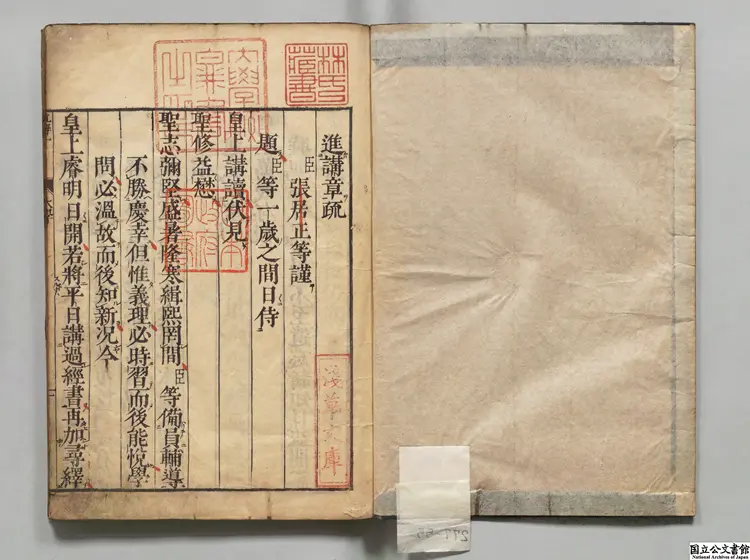 進講章疏
臣張居正等謹
題臣等一歲之間日侍
皇上講讀伏見
聖修益懋
聖志彌堅盛暑隆寒緝熙罔間臣等備員輔導
不勝慶幸但惟義理必時習而後能悅學
問必溫故而後知新況今
皇上睿明日開若將平日講過經書再加尋繹
林氏
藏書
淺草文庫
国立公文書館
National Archives of Japan